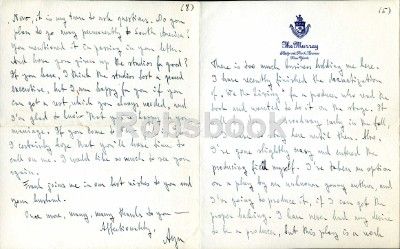 (8)
Now, it is my turn to ask questions. Do you
plan to go away permanently to South America?
You mentioned it in passing in your letter.
And have you given up the studios for good?
If you have, I think the studios lost a grand
executive, but I am happy for you if you
can get a rest which you always needed, and
I'm glad to hear that
marriage. If you come to
I certainly hope that you'll have time to
call on me. I would like so much to see you
again.
Frank joins me in our best wishes to you and
your husband.
Once more, many, many thanks to you —
Affectionately,
Ayn
(5)
The Murray
Sixty-six Park Avenue
New York
There is too much business holding me here.
I have recently finished the dramatization
of "We the Living" for a producer who read the
book and wanted to do it on the stage. It
early in the fall,
here until then. Also,
I've gone slightly crazy and entered the
producing field myself. I've taken an option
on a play by an unknown young author, and
I'm going to produce it, if I can get the
proper backing. I have never had any desire
to be a producer, but this play is a work
Robsbook